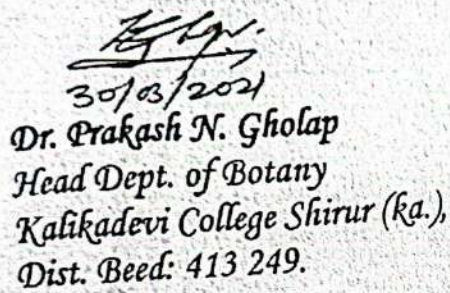 30/03/2021
Dr. Prakash N. Gholap
Head Dept. of Botany
Kalikadevi College Shirur (ka.),
Dist. Beed: 413 249.